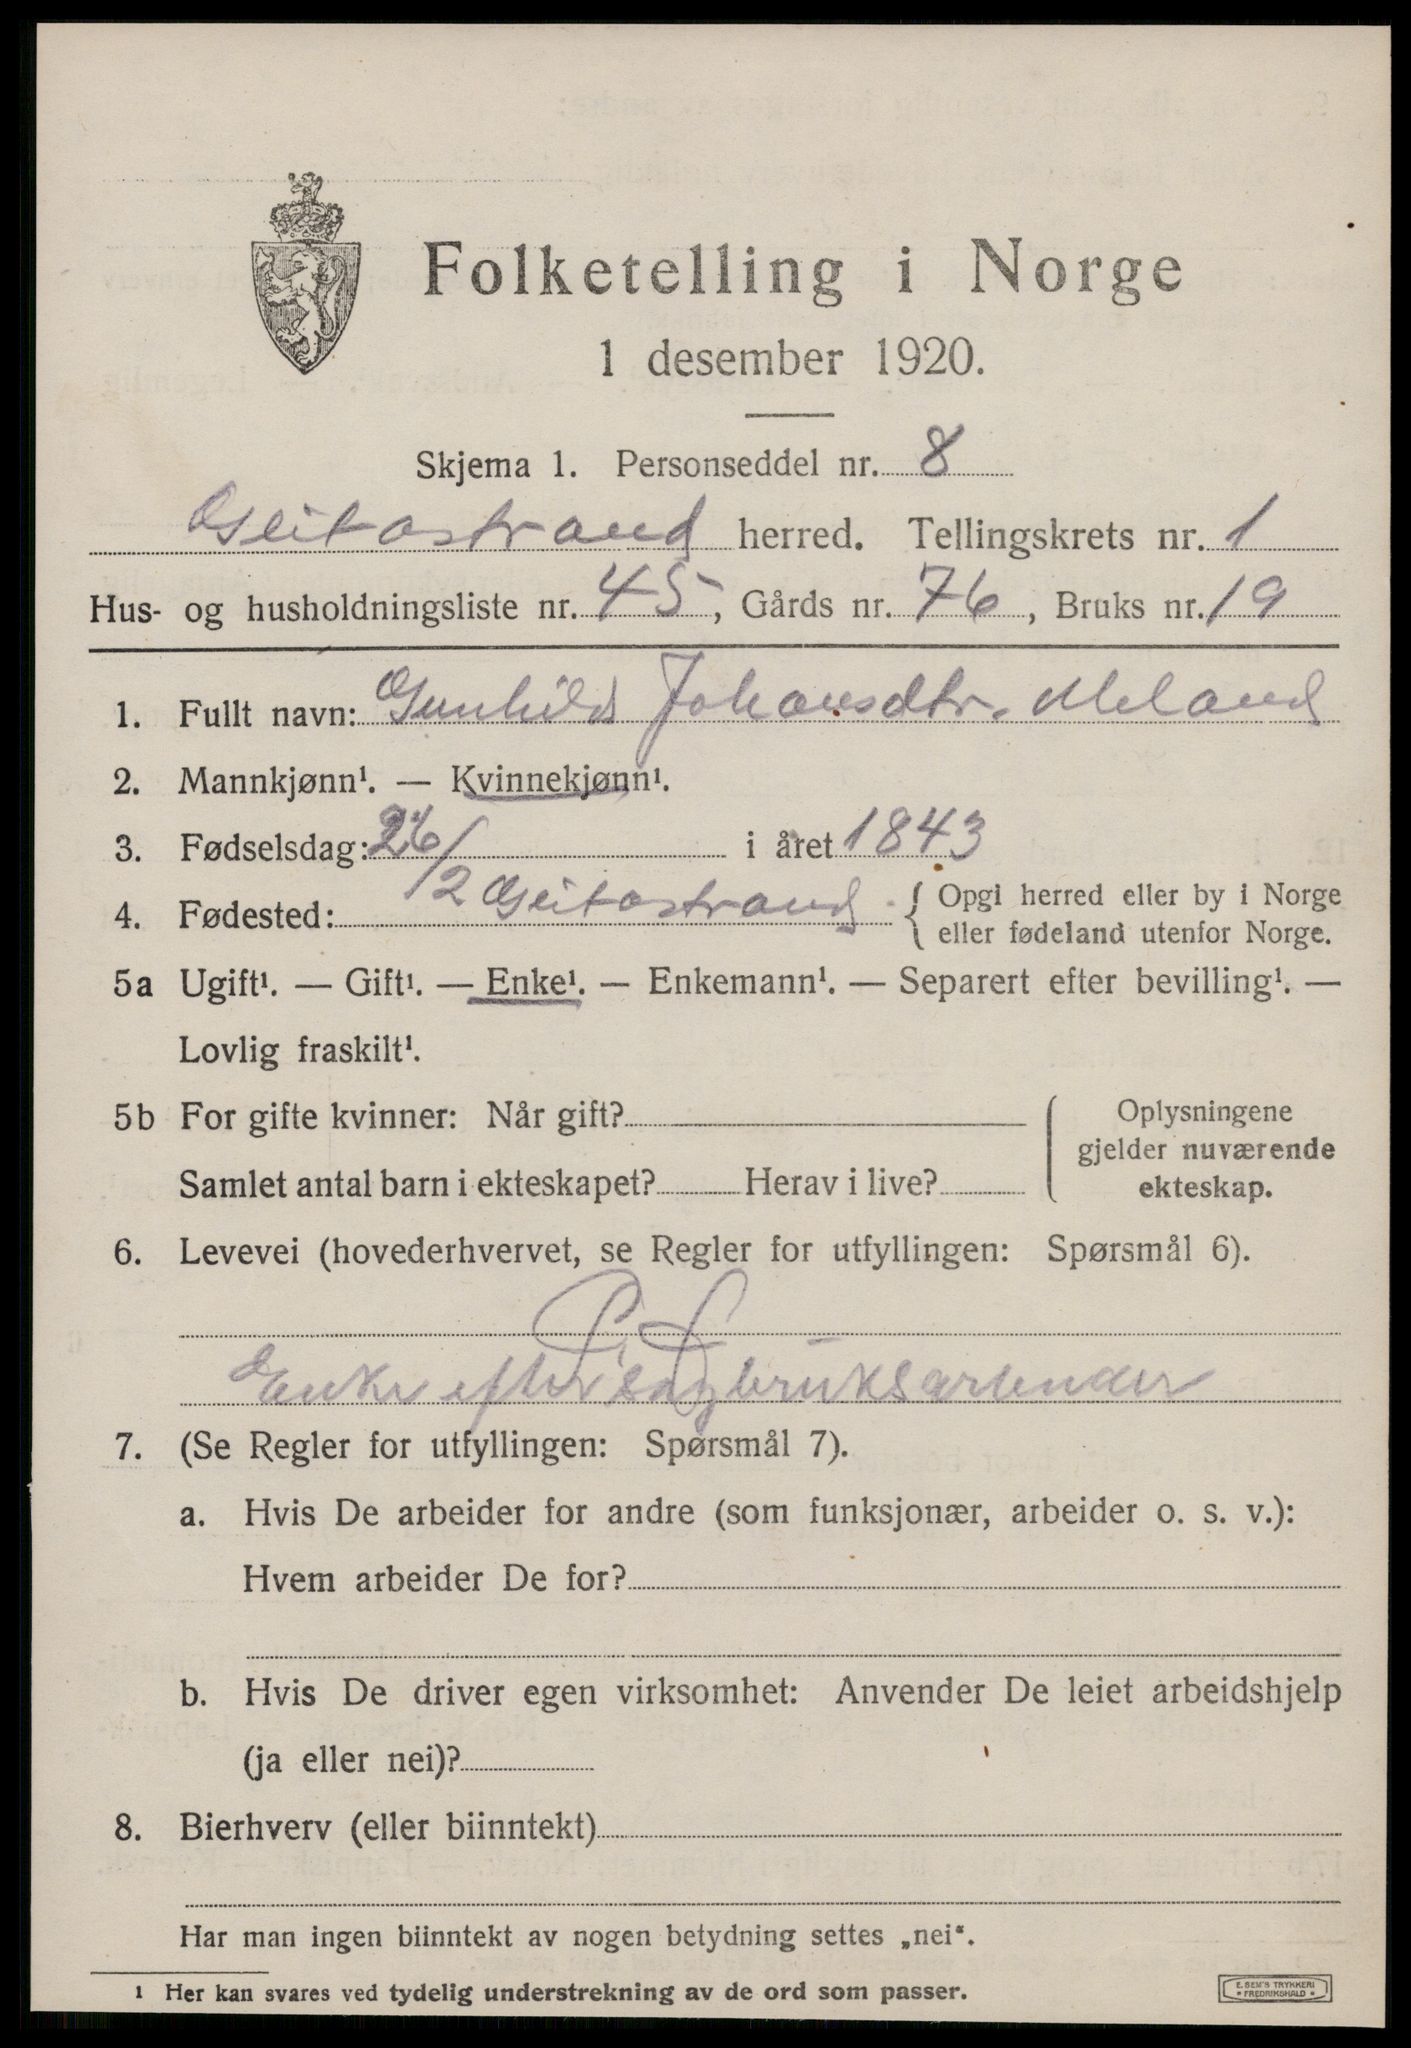 Folketelling i Norge
1 desember 1920.
Skjema 1. Personseddel nr. 8
Geitastrand herred. Tellingskrets nr. 1
Hus- og husholdningsliste nr. 45, Gårds nr. 76, Bruks nr. 19
1. Fullt navn: Gunhild Johansdtr. Meland
2. Mannkjønn¹. — Kvinnekjønn¹.
3. Fødselsdag: 26/2 i året 1843
4. Fødested: Geitastrand { Opgi herred eller by i Norge
eller fødeland utenfor Norge.
5a Ugift¹. — Gift¹. — Enke¹. — Enkemann¹. — Separert efter bevilling¹. —
Lovlig fraskilt¹.
5b For gifte kvinner: Når gift? Oplysningene
gjelder nuværende
Samlet antal barn i ekteskapet? Herav i live? ekteskap.
6. Levevei (hovederhvervet, se Regler for utfyllingen: Spørsmål 6).
Enke efter sagbruksarbeider
7. (Se Regler for utfyllingen: Spørsmål 7).
a. Hvis De arbeider for andre (som funksjonær, arbeider o. s. v.):
Hvem arbeider De for?
b. Hvis De driver egen virksomhet: Anvender De leiet arbeidshjelp
(ja eller nei)?
8. Bierhverv (eller biinntekt)
Har man ingen biinntekt av nogen betydning settes „nei“.
¹ Her kan svares ved tydelig understrekning av de ord som passer.
E. SEM'S TRYKKERI
* FREDRIKSHALD *